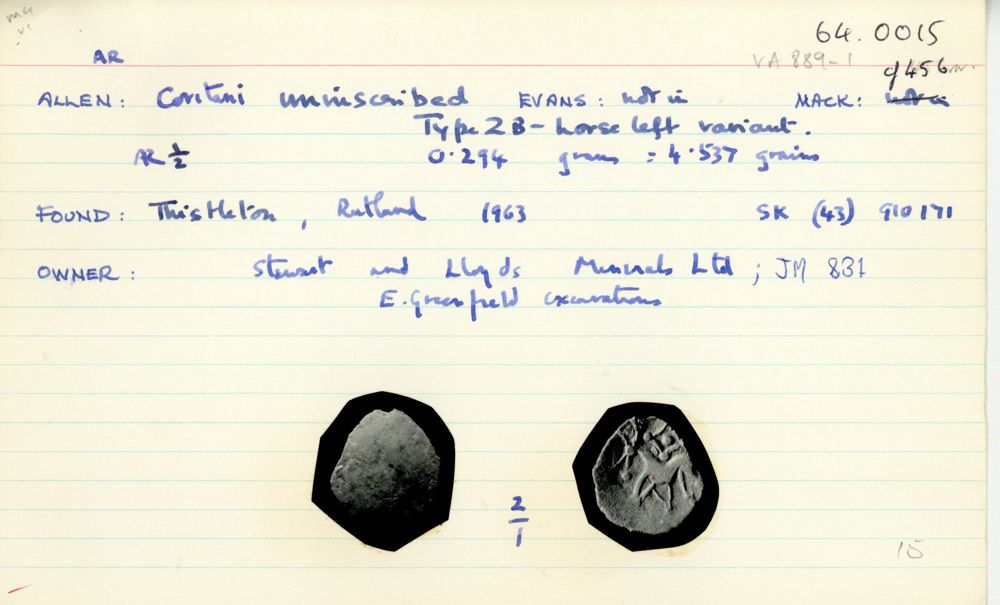 64.0015
AR
VA 889-1
cf 456 var.
ALLEN: Coritani uninscribed EVANS: not in MACK: not in
Type 2B - horse left variant.
AR ½ 0.294 grams = 4.537 grains
FOUND: Thistleton, Rutland 1963 SK (43) 910171
OWNER: Stewart and Lloyds Minerals Ltd; JM 831
E. Greenfield excavations
2
1
15